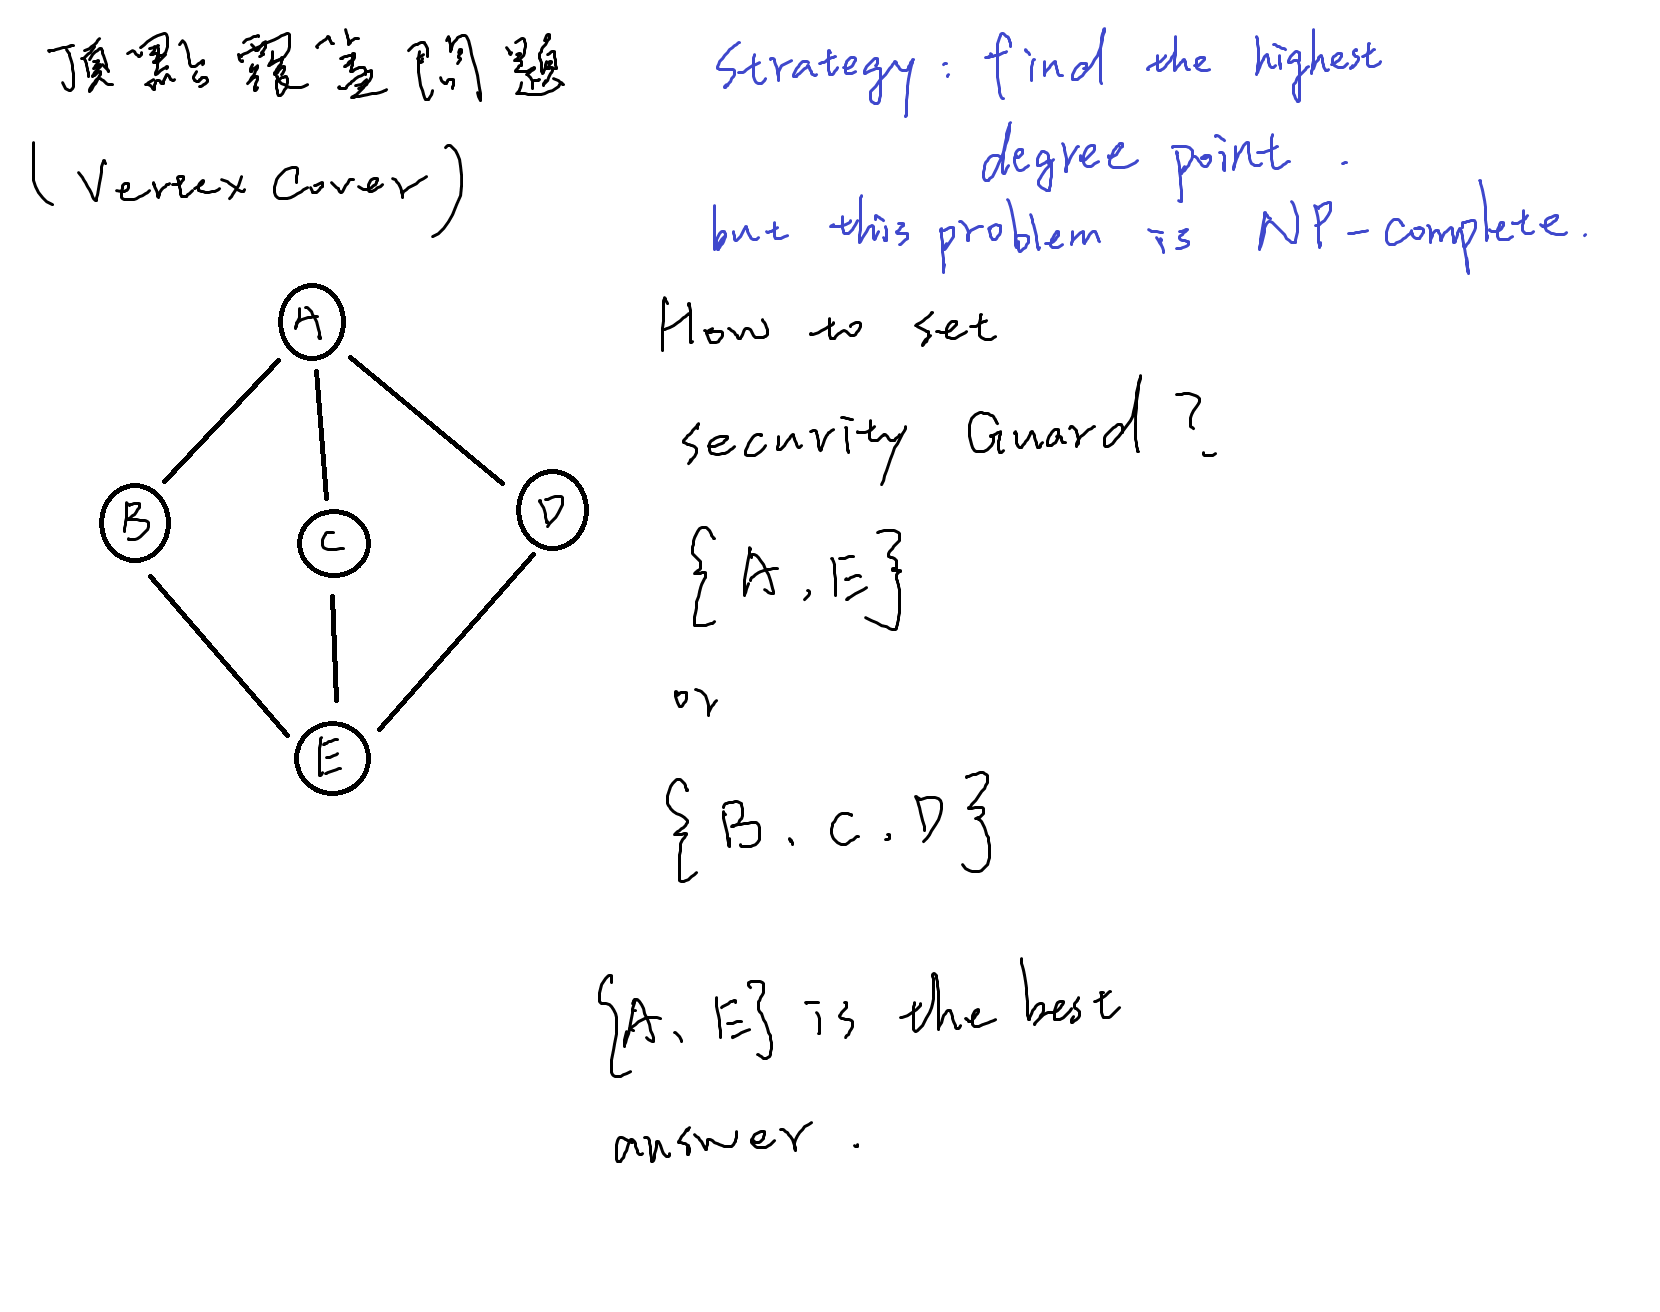 頂點覆蓋問題
(Vertex Cover)
Strategy: find the highest
degree point.
but this problem is NP-complete.
How to set
security Guard?
{A, E}
or
{B, C, D}
{A, E} is the best
answer.
A
B
C
D
E